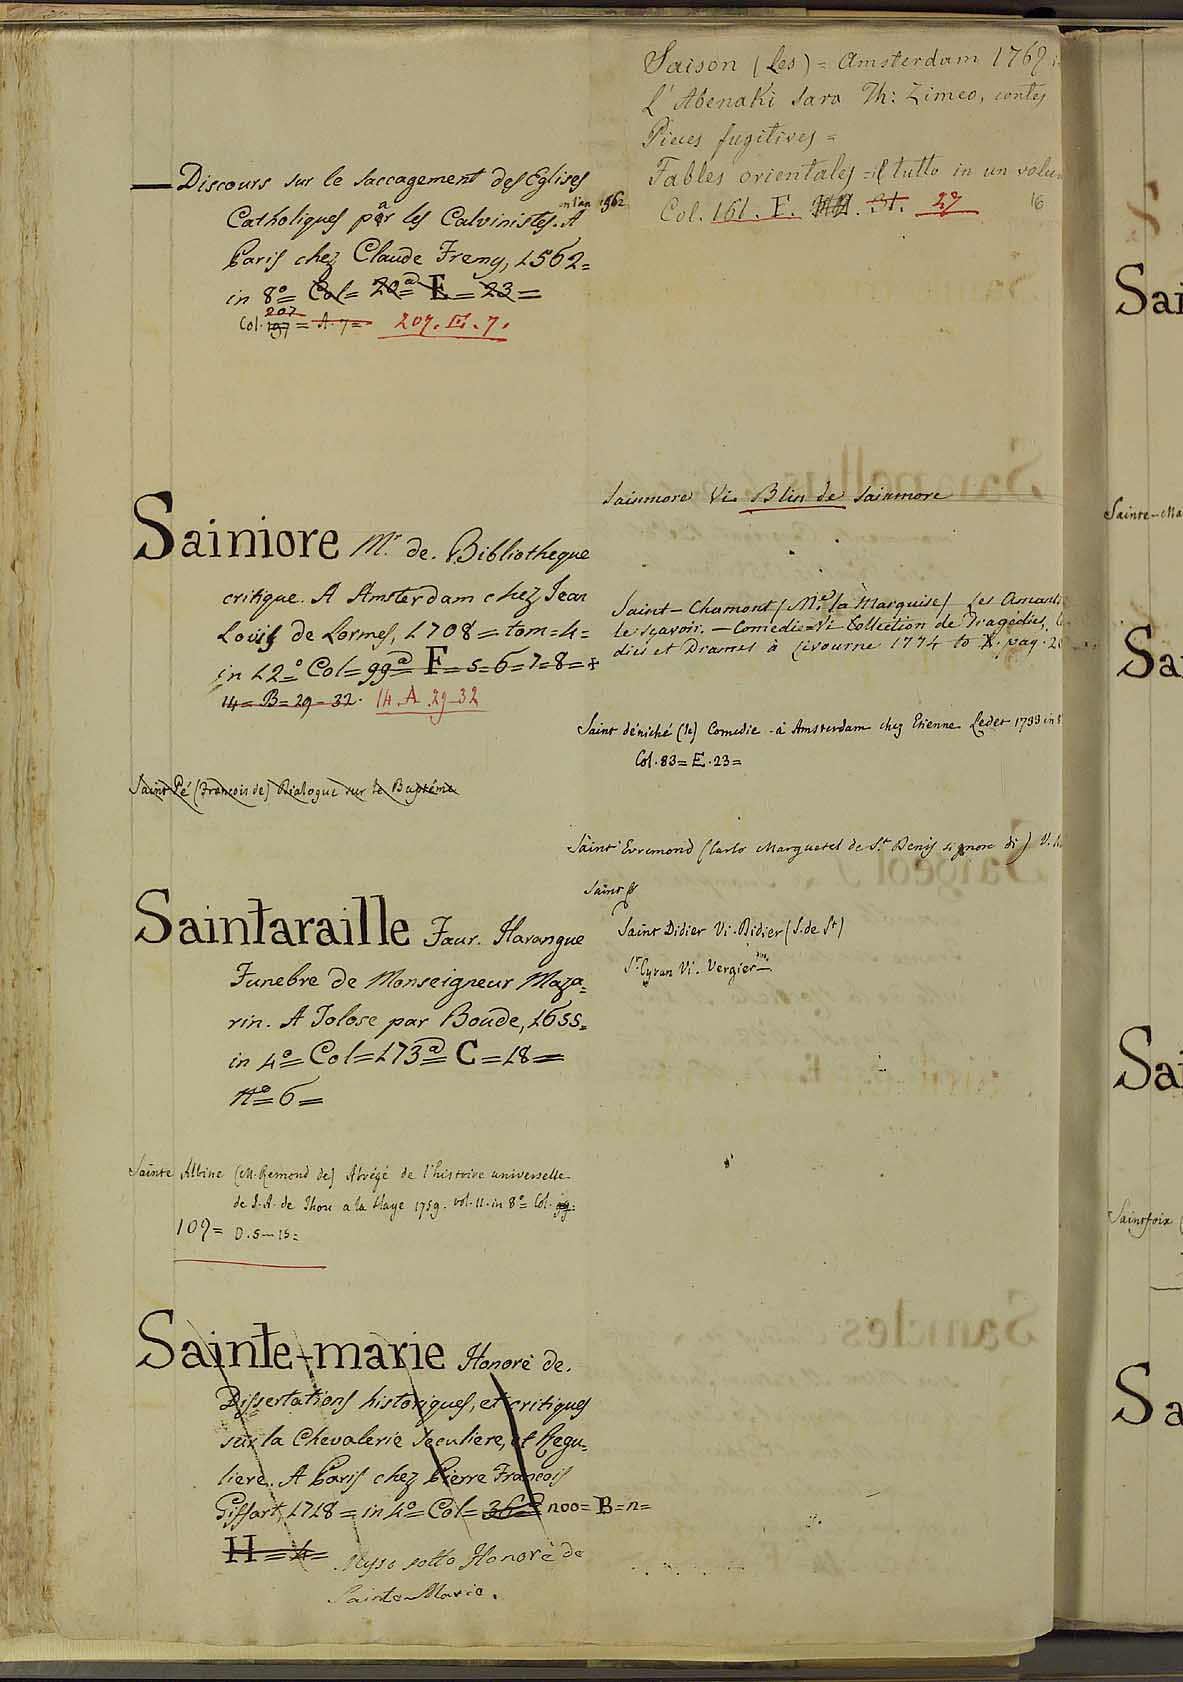 — Discours sur le saccagement des Eglises
Catholiques par les Calvinistes. en l'an 1562 A
Paris chez Claude Fremy, 1562=
in 8º= Col= 20ª= E= 23=
Col. 197 207 = A. 7= 207. E. 7.
Sainiore Mr. de. Bibliotheque
critique. A Amsterdam chez Jean
Louis de Lormes, 1708= tom=4=
in 12º Col= 99ª= F=5=6=7=8=
14= B= 29-32. 14. A. 29-32
Saint Pé (François de) Dialogue sur le Baptéme
Saintaraille Faur. Harangue
Funebre de Monseigneur Maza=
rin. A Tolose par Boude, 1655=
in 4º= Col=173ª= C=18=
Nº=6=
Sainte Albine (M. Remond de) Abrégé de l'histoire universelle
de J. A. de Thou a la Haye 1759. vol. 11. in 8º= Col. 99.
109= D. 5-15=
Sainte-marie Honorè de.
Dissertations historiques, et critiques
sur la Chevalerie Seculiere, et Regu=
liere. A Paris chez Pierre François
Giffart, 1718= in 4º= Col= 36 noo= B=n=
H=4= sotto Honorè de
Sainte-Marie.
Saison (Les) = Amsterdam 1769
L'Abenaki Sara Th: Zimeo, contes
Pieces fugitives=
Fables orientales= il tutto in un volu
Col. 161. F. 31. 27 16
Sainmore Vi. Blin de Sainmore
Saint-Chamont (Me. la Marquise) Les Amants
le sçavoir. — Comedie= Vi Collection de Tragédies,
dies et Drames à Livourne 1774 to X. pag. 2
Saint déniché (le) Comedie - à Amsterdam chez Etienne Ledet 1733 in 8
Col. 83= E. 23=
Saint Evremond (Carlo Marguetel de St. Denis signore di) V.
Saint
Saint Didier Vi. Didier (S. de St)
St Cyran Vi. Vergier
Sai
Sainte-Ma
Sa
Sai
Saintfoix (
Sa